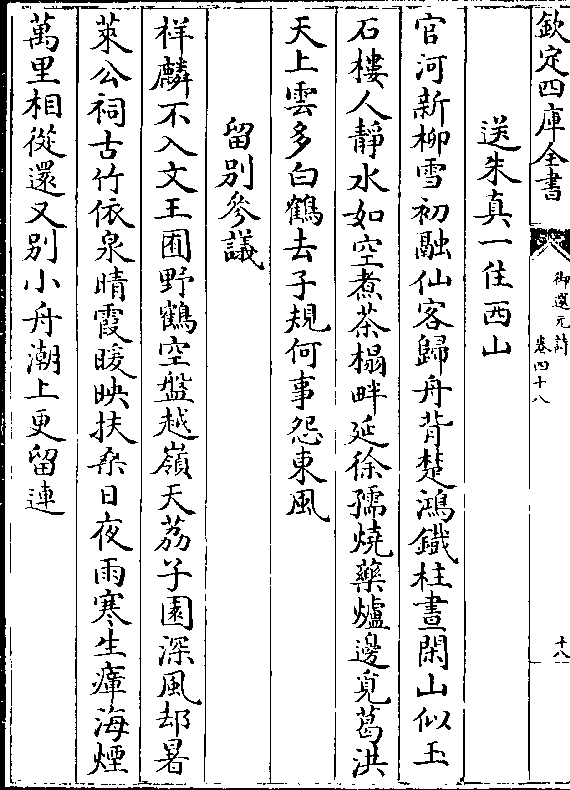 欽定四庫全書
御選元詩
卷四十八
十八
送朱真一住西山
官河新柳雪初融仙客歸舟背楚鴻鐵柱晝閑山似玉
石樓人靜水如空煮茶榻畔延徐孺燒藥爐邊覓葛洪
天上雲多白鶴去子規何事怨東風
留別參議
祥麟不入文王囿野鶴空盤越嶺天荔子園深風却暑
萊公祠古竹依泉晴霞暖映扶桑日夜雨寒生瘴海煙
萬里相從還又别小舟潮上更留連